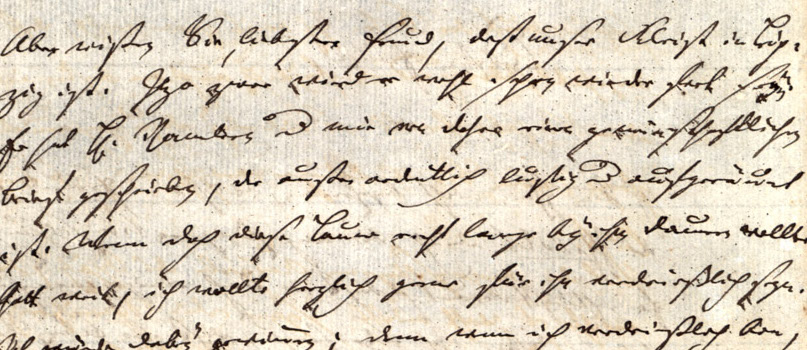 Aber wissen Sie, liebster Freund, daß unser Kleist in Leip-
zig ist. Izo zwar wird er wohl schon wieder fort seyn
Er hat H. Ramlern und mir von daher einen gemeinschaftlichen
Brief geschrieben, der außerordentlich lustig und aufgeräumt
ist. Wenn doch diese Laune recht lange bey ihm dauern wollte
Gott weiß, ich wollte herzlich gerne für ihn verdrießlich seyn.
Ich würde dabey gewinnen; denn wenn ich verdrießlich bin,